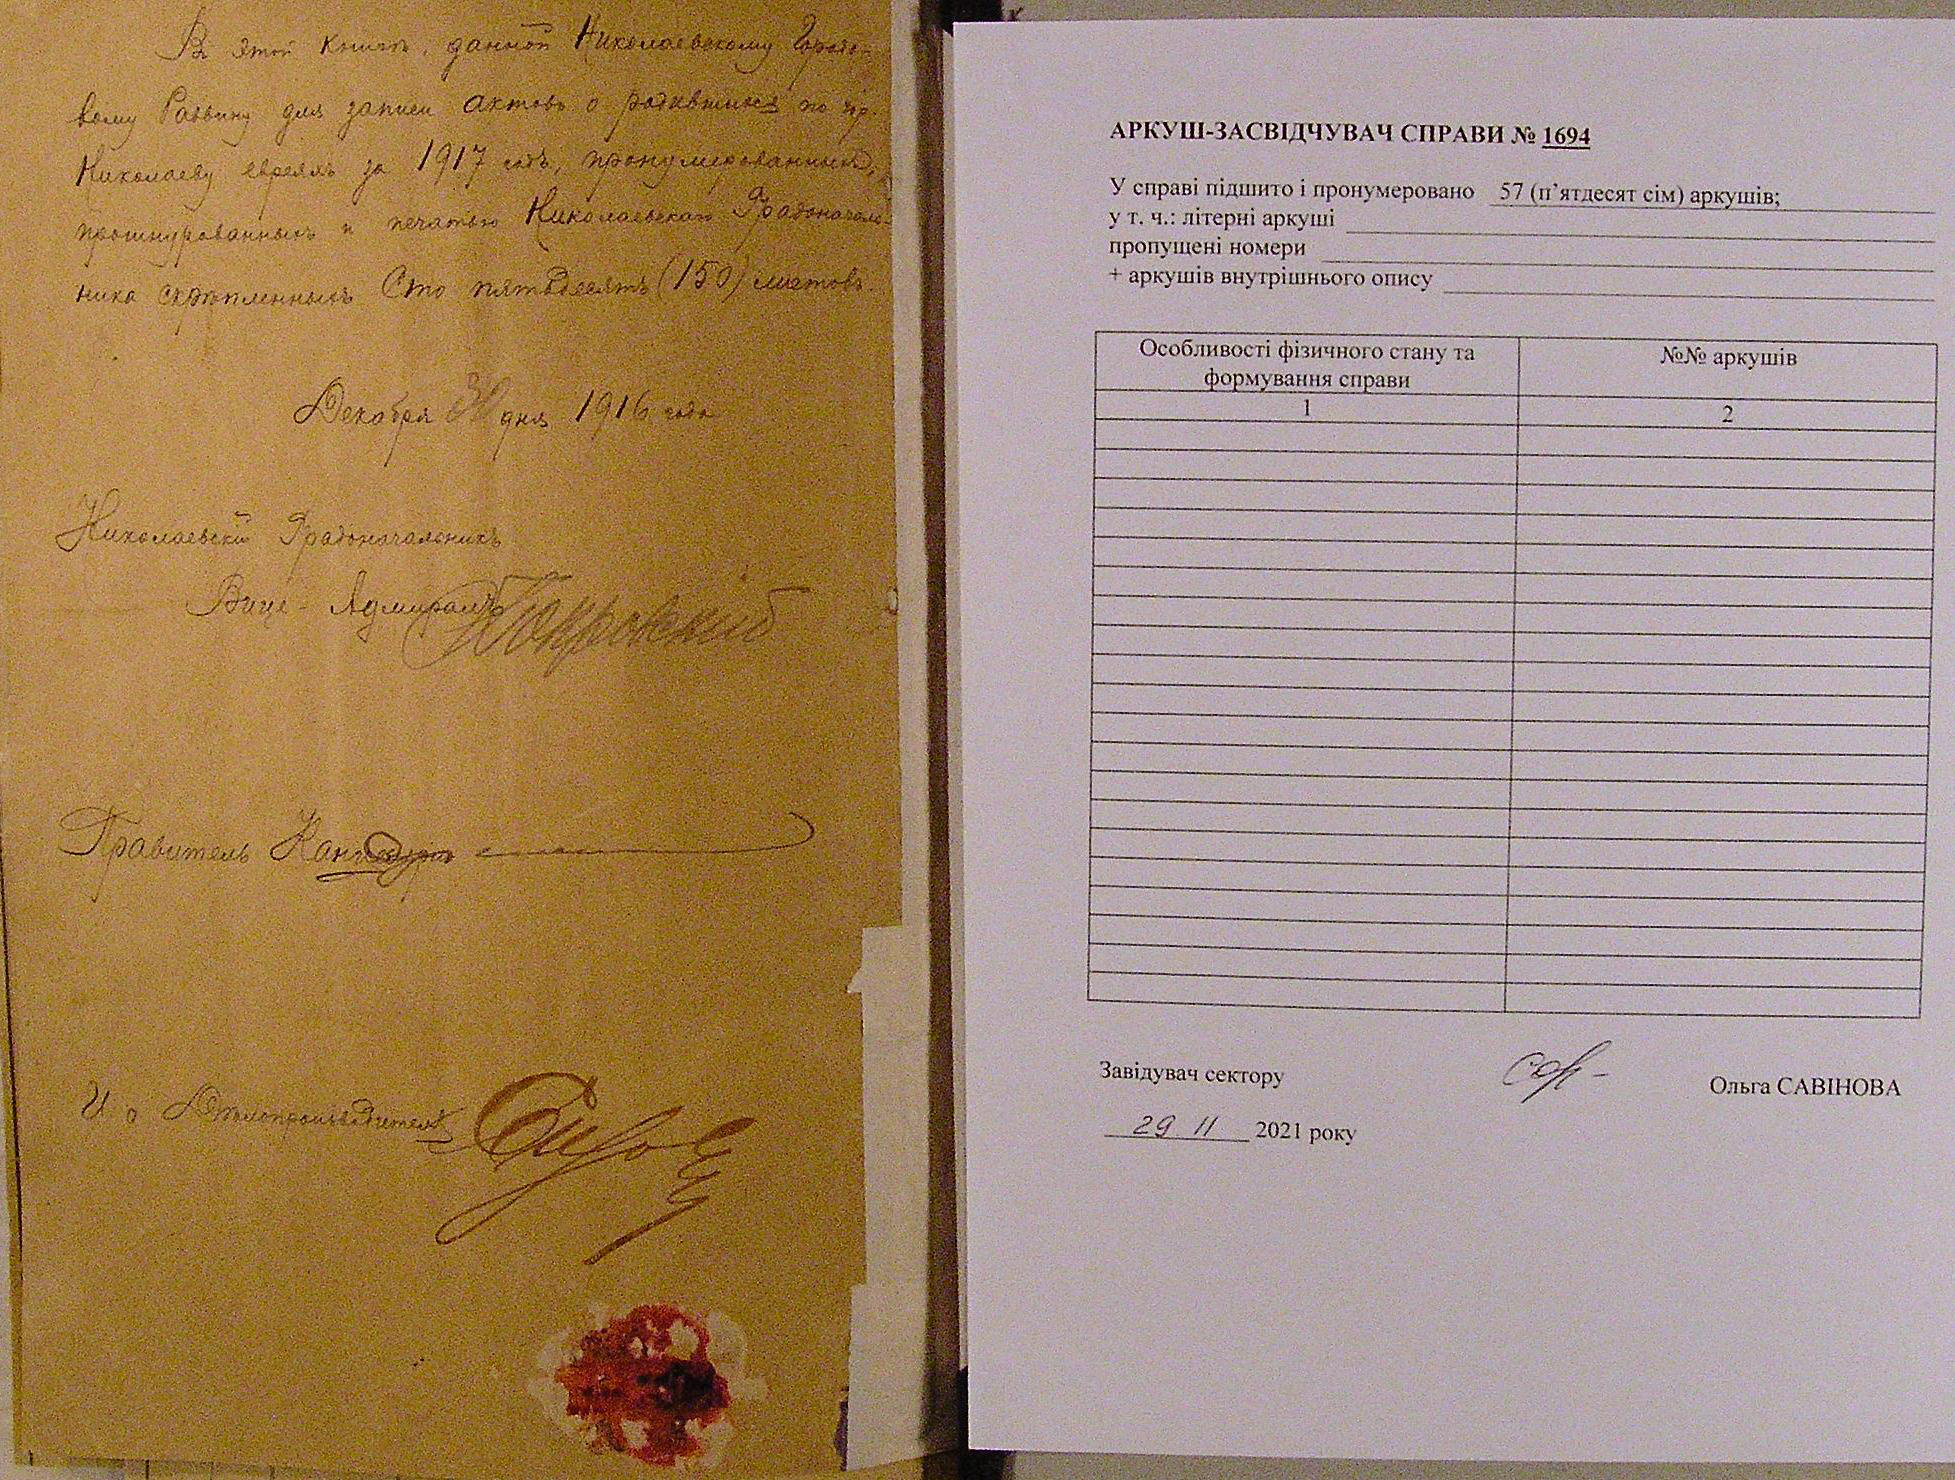 Въ этой книгѣ, данной Николаевскому Городо-
вому Раввину для записи актовъ о родившихся по гор.
Николаеву евреямъ за 1917 годъ, пронумерованныхъ,
прошнурованныхъ и печатью Николаевскаго Градоначаль-
ника скрѣпленныхъ Сто пятьдесятъ (150) листовъ.
Декабря 30 дня 1916 года
Николаевскій Градоначальникъ
Вице-Адмиралъ Покровскій
Правитель Канцеляріи
И о Дѣлопроизводителя
АРКУШ-ЗАСВІДЧУВАЧ СПРАВИ № 1694
У справі підшито і пронумеровано 57 (п’ятдесят сім) аркушів;
у т. ч.: літерні аркуші
пропущені номери
+ аркушів внутрішнього опису
Особливості фізичного стану та
формування справи
№№ аркушів
1
2
Завідувач сектору
Ольга САВІНОВА
29 11 2021 року